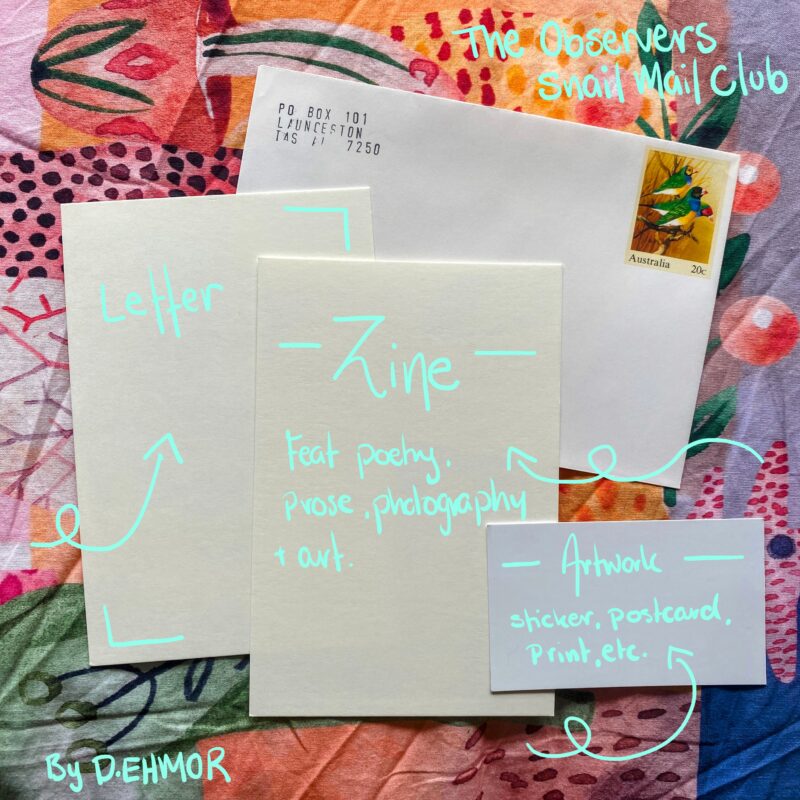 The Observers
Snail Mail Club
PO BOX 101
LAUNCESTON
TAS AU 7250
Australia 20c
Letter
Zine
Feat poetry,
prose, photography
+ art.
Artwork
sticker, postcard,
print, etc.
By D.EHMOR